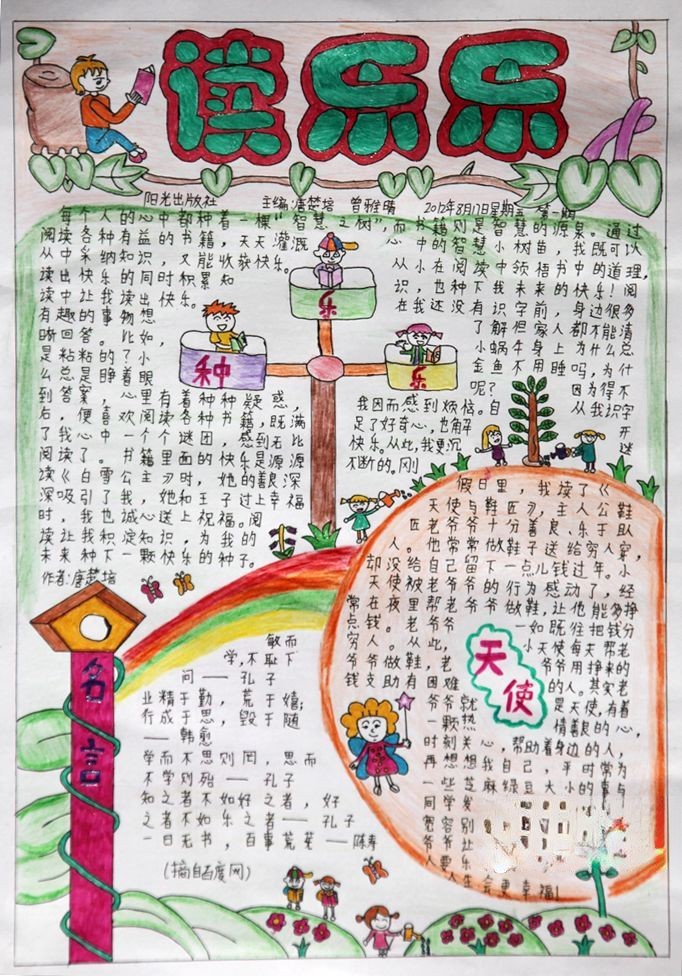 读乐乐
阳光出版社 主编：唐楚培 曾雅晴 2012年8月17日星期五 第一期
每个人的心中都种着一棵"智慧之树"，而书籍则是智慧的源泉。通过
阅读各种有益的书籍，天天灌溉 心中的智慧小树苗，我既可以
从中采纳知识，又能收获快乐。 从小在阅读中领悟书中的道理，
读出快乐的同时积累知 识，也种下我未来的快乐！阅
读中让我读出快乐。 在我还没有识字前，身边很多
有趣的事物想 了解但家人都不能清
晰回答。比如， 小蜗牛身上为什么总
是粘粘的？小 金鱼不用睡吗，为什
么总是睁着眼 呢？ 因为得不
到答案，心里有着种种疑惑， 我因而感到烦恼。自 从我识字
后，便喜欢阅读各种书籍，既满 足了好奇心，也解 开
了我心中一个个谜团，感到无比 快乐。从此，我更沉 迷
阅读了。书籍里面的快乐是源源 不断的，刚
读《白雪公主》时，她的善良深
深吸引了我，她和王子过上幸福
时，我也诚心送上祝福。阅
读让我积淀知识，为我的
未来种下一颗快乐的种子。
作者：唐楚培
乐
种
乐
假日里，我读了《
天使与鞋匠》，主人公鞋
匠老爷爷十分善良、乐于助
人。他常常做鞋子送给穷人穿，
却没给自己留下一点儿钱过年。小
天使被老爷爷的行为感动了，经
常在夜里帮老爷爷做鞋，让他能多挣
点钱。老爷爷 一如既往把钱分
穷人。从此， 小天使每天帮老
爷爷做鞋，老 爷爷用挣来的
钱支助有困难 的人。其实老
爷爷就 是天使，有着
一颗热 情善良的心，
时刻关心，帮助着身边的人，
再想想我自己，平时常为
一些芝麻绿豆大小的事与
同学发
宽容别
人要
会更幸福！
天使
名言
敏而
学，不耻下
问——孔子
业精于勤，荒于嬉；
行成于思，毁于随
——韩愈
学而不思则罔，思而
不学则殆——孔子
知之者不如好之者，好
之者不如乐之者——孔子
一日无书，百事荒芜——陈寿
（摘自百度网）